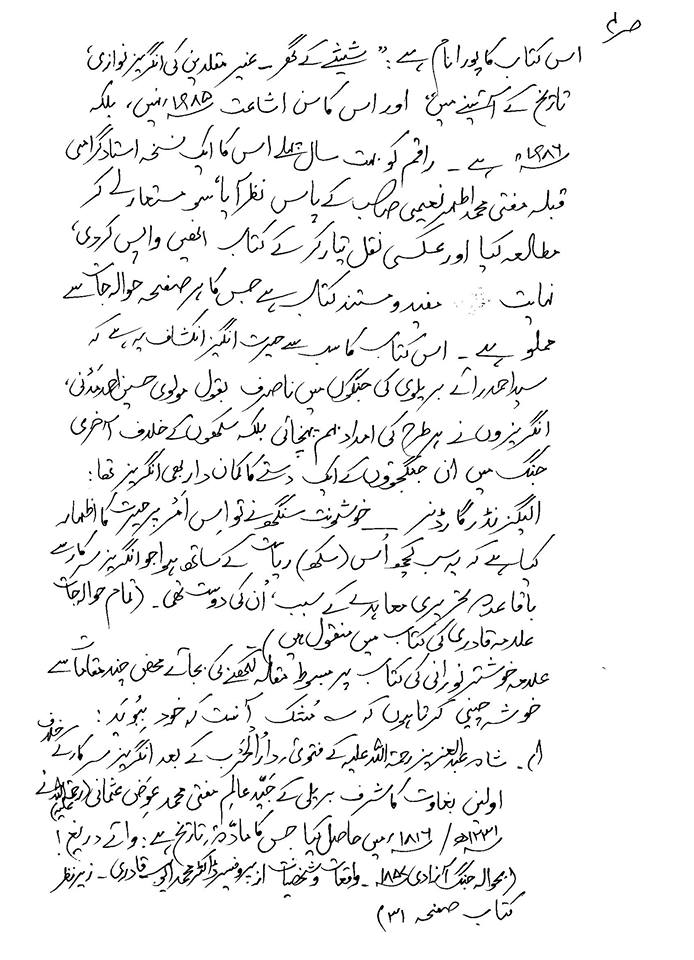 ص ۲
اس کتاب کا پورا نام ہے : ”شیشے کے گھر ۔ غیر مقلدین کی انگریز نوازی،
تاریخ کے آئینے میں“ اور اس کا سنِ اشاعت ۱۹۸۵ء نہیں، بلکہ
۱۹۸۶ء ہے ۔ راقم کو بہت سال پہلے اس کا ایک نسخہ استاد گرامی
قبلہ مفتی محمد اطہر نعیمی صاحب کے پاس نظر آیا، سو مستعار لے کر
مطالعہ کیا اور عکسی نقل تیار کر کے کتاب انھیں واپس کر دی،
نہایت مفید و مستند کتاب ہے جس کا ہر صفحہ حوالہ جات سے
مملو ہے ۔ اس کتاب کا سب سے حیرت انگیز انکشاف یہ ہے کہ
سید احمد رائے بریلوی کی جنگوں میں ناصرف بقول مولوی حسین احمد مدنی،
انگریزوں نے ہر طرح کی امداد بہم پہنچائی بلکہ سکھوں کے خلاف آخری
جنگ میں ان جنگجوؤں کے ایک دستے کا کمان دار بھی انگریز تھا :
الیگزنڈر گارڈنر ــ خوشونت سنگھ نے تو اِس اَمر پر حیرت کا اظہار
کیا ہے کہ یہ سب کچھ اُس (سکھ) ریاست کے ساتھ ہوا جو انگریز سرکار سے
باقاعدہ تحریری معاہدے کے سبب، اُن کی دوست تھی ۔ (تمام حوالہ جات
علامہ قادری کی کتاب میں منقول ہیں)
علامہ خوشتر نورانی کی کتاب پر مبسوط مقالہ لکھنے کی بجائے محض چند مقامات سے
خوشہ چینی کرتا ہوں کہ ؎ مُشک آنست کہ خود بِبُویَد :
ا)۔ شاہ عبدالعزیز رحمۃ اللہ علیہ کے فتویٰ دارُالحَرب کے بعد انگریز سرکار کے خلاف
اولین بغاوت کا شرف بریلی کے جَیّد عالِم مفتی محمد عِوَض عثمانی (رحمۃ اللہ علیہ) نے
۱۲۳۱ھ / ۱۸۱۶ء میں حاصل کیا جس کا مادّۂ تاریخ ہے : وائے دریغ !
(بحوالہ جنگ آزادی ۱۸۵۷ء ۔ واقعات و شخصیات از پروفیسر ڈاکٹر محمد ایوب قادری ۔ زیرِ نظر
کتاب صفحہ ۳۱)